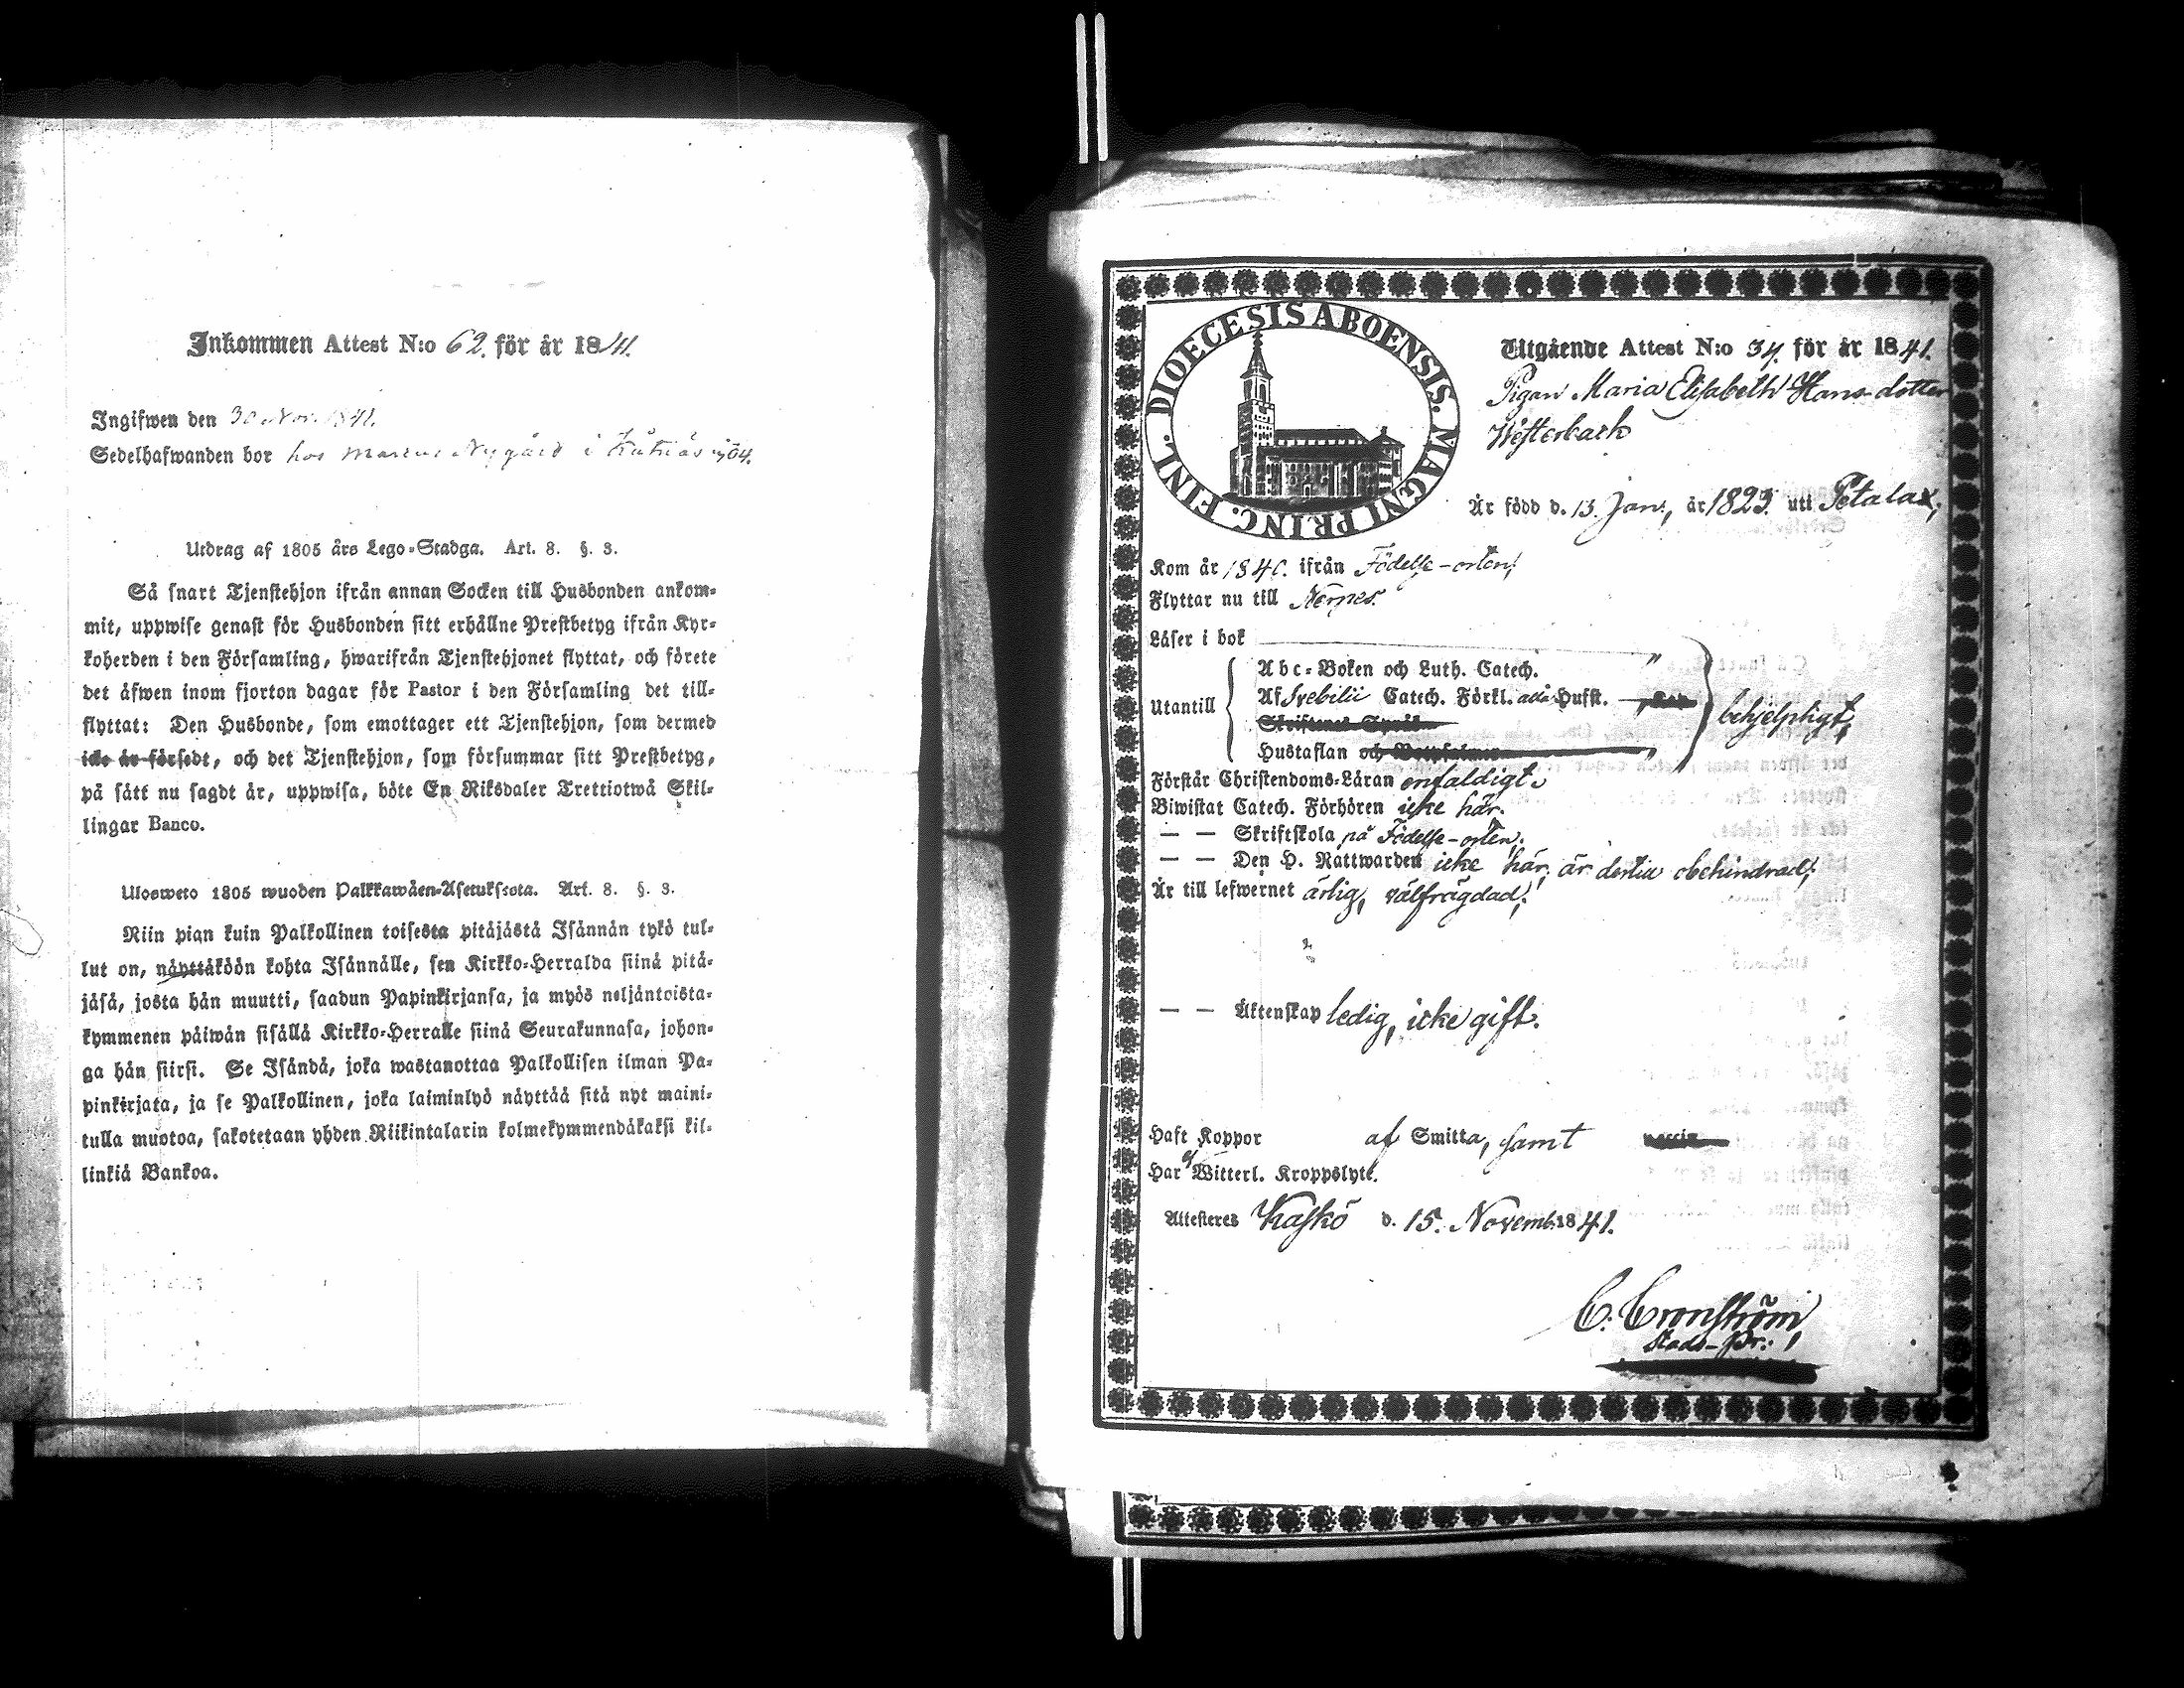 Inkommen Attest N:o 62. för år 1841.
Ingifwen den 30 Nov. 1841.
Sedelhafwanden bor hos Marcus Nygård i
Utdrag af 1805 års Lego-Stadga. Art. 8. §. 3.
Så snart Tjenstehjon ifrån annan Socken till Husbonden ankom-
mit, uppwise genast för Husbonden sitt erhållne Prestbetyg ifrån Kyr-
koherden i den Församling, hwarifrån Tjenstehjonet flyttat, och förete
det äfwen inom fjorton dagar för Pastor i den Församling det till-
flyttat: Den Husbonde, som emottager ett Tjenstehjon, som dermed
icke är försedt, och det Tjenstehjon, som försummar sitt Prestbetyg,
på sätt nu sagdt är, uppwisa, böte En Riksdaler Trettiotwå Skil-
lingar Banco.
Ulosweto 1805 wuoden Palkkawäen-Asetuksesta. Art. 8. §. 3.
Niin pian kuin Palkollinen toisesta pitäjästä Isännän tykö tul-
lut on, näyttäköön kohta Isännälle, sen Kirkko-Herralda siinä pitä-
jäsä, josta hän muutti, saadun Papinkirjansa, ja myös neljäntoista-
kymmenen päiwän sisällä Kirkko-Herralle siinä Seurakunnasa, johon-
ga hän siirsi. Se Isändä, joka wastanottaa Palkollisen ilman Pa-
pinkirjata, ja se Palkollinen, joka laiminlyö näyttää sitä nyt maini-
tulla muotoa, sakotetaan yhden Riikintalarin kolmekymmendäkaksi kil-
linkiä Bankoa.
DIOECESIS ABOENSIS. MAGNI PRINC. FINL.
Utgående Attest N:o 34. för år 1841.
Pigan Maria Elisabeth Hans-dotter
Westerback
Är född d. 13. Jan., år 1823. uti Petalax,
Kom år 1840. ifrån Födelse-orten;
Flyttar nu till Nerpes.
Läser i bok
Abc-Boken och Luth. Catech. "
Utantill Af Svebilii Catech. Förkl. alla Hufst. behjelpligt;
Skriftenes Språk
Hustaflan och Botpsalmer "
Förstår Christendoms-Läran enfaldigt.
Biwistat Catech. Förhören icke här.
— — Skriftskola på Födelse-orten;
— — Den H. Nattwarden icke här; är dertill obehindrad;
Är till lefwernet ärlig, välfrägdad;
— — Äktenskap ledig, icke gift.
Haft Koppor af Smitta, samt
Har ej Witterl. Kroppslyte.
Attesteres Kaskö d. 15. Novemb. 1841.
C. Cronström
Stads-Pr: